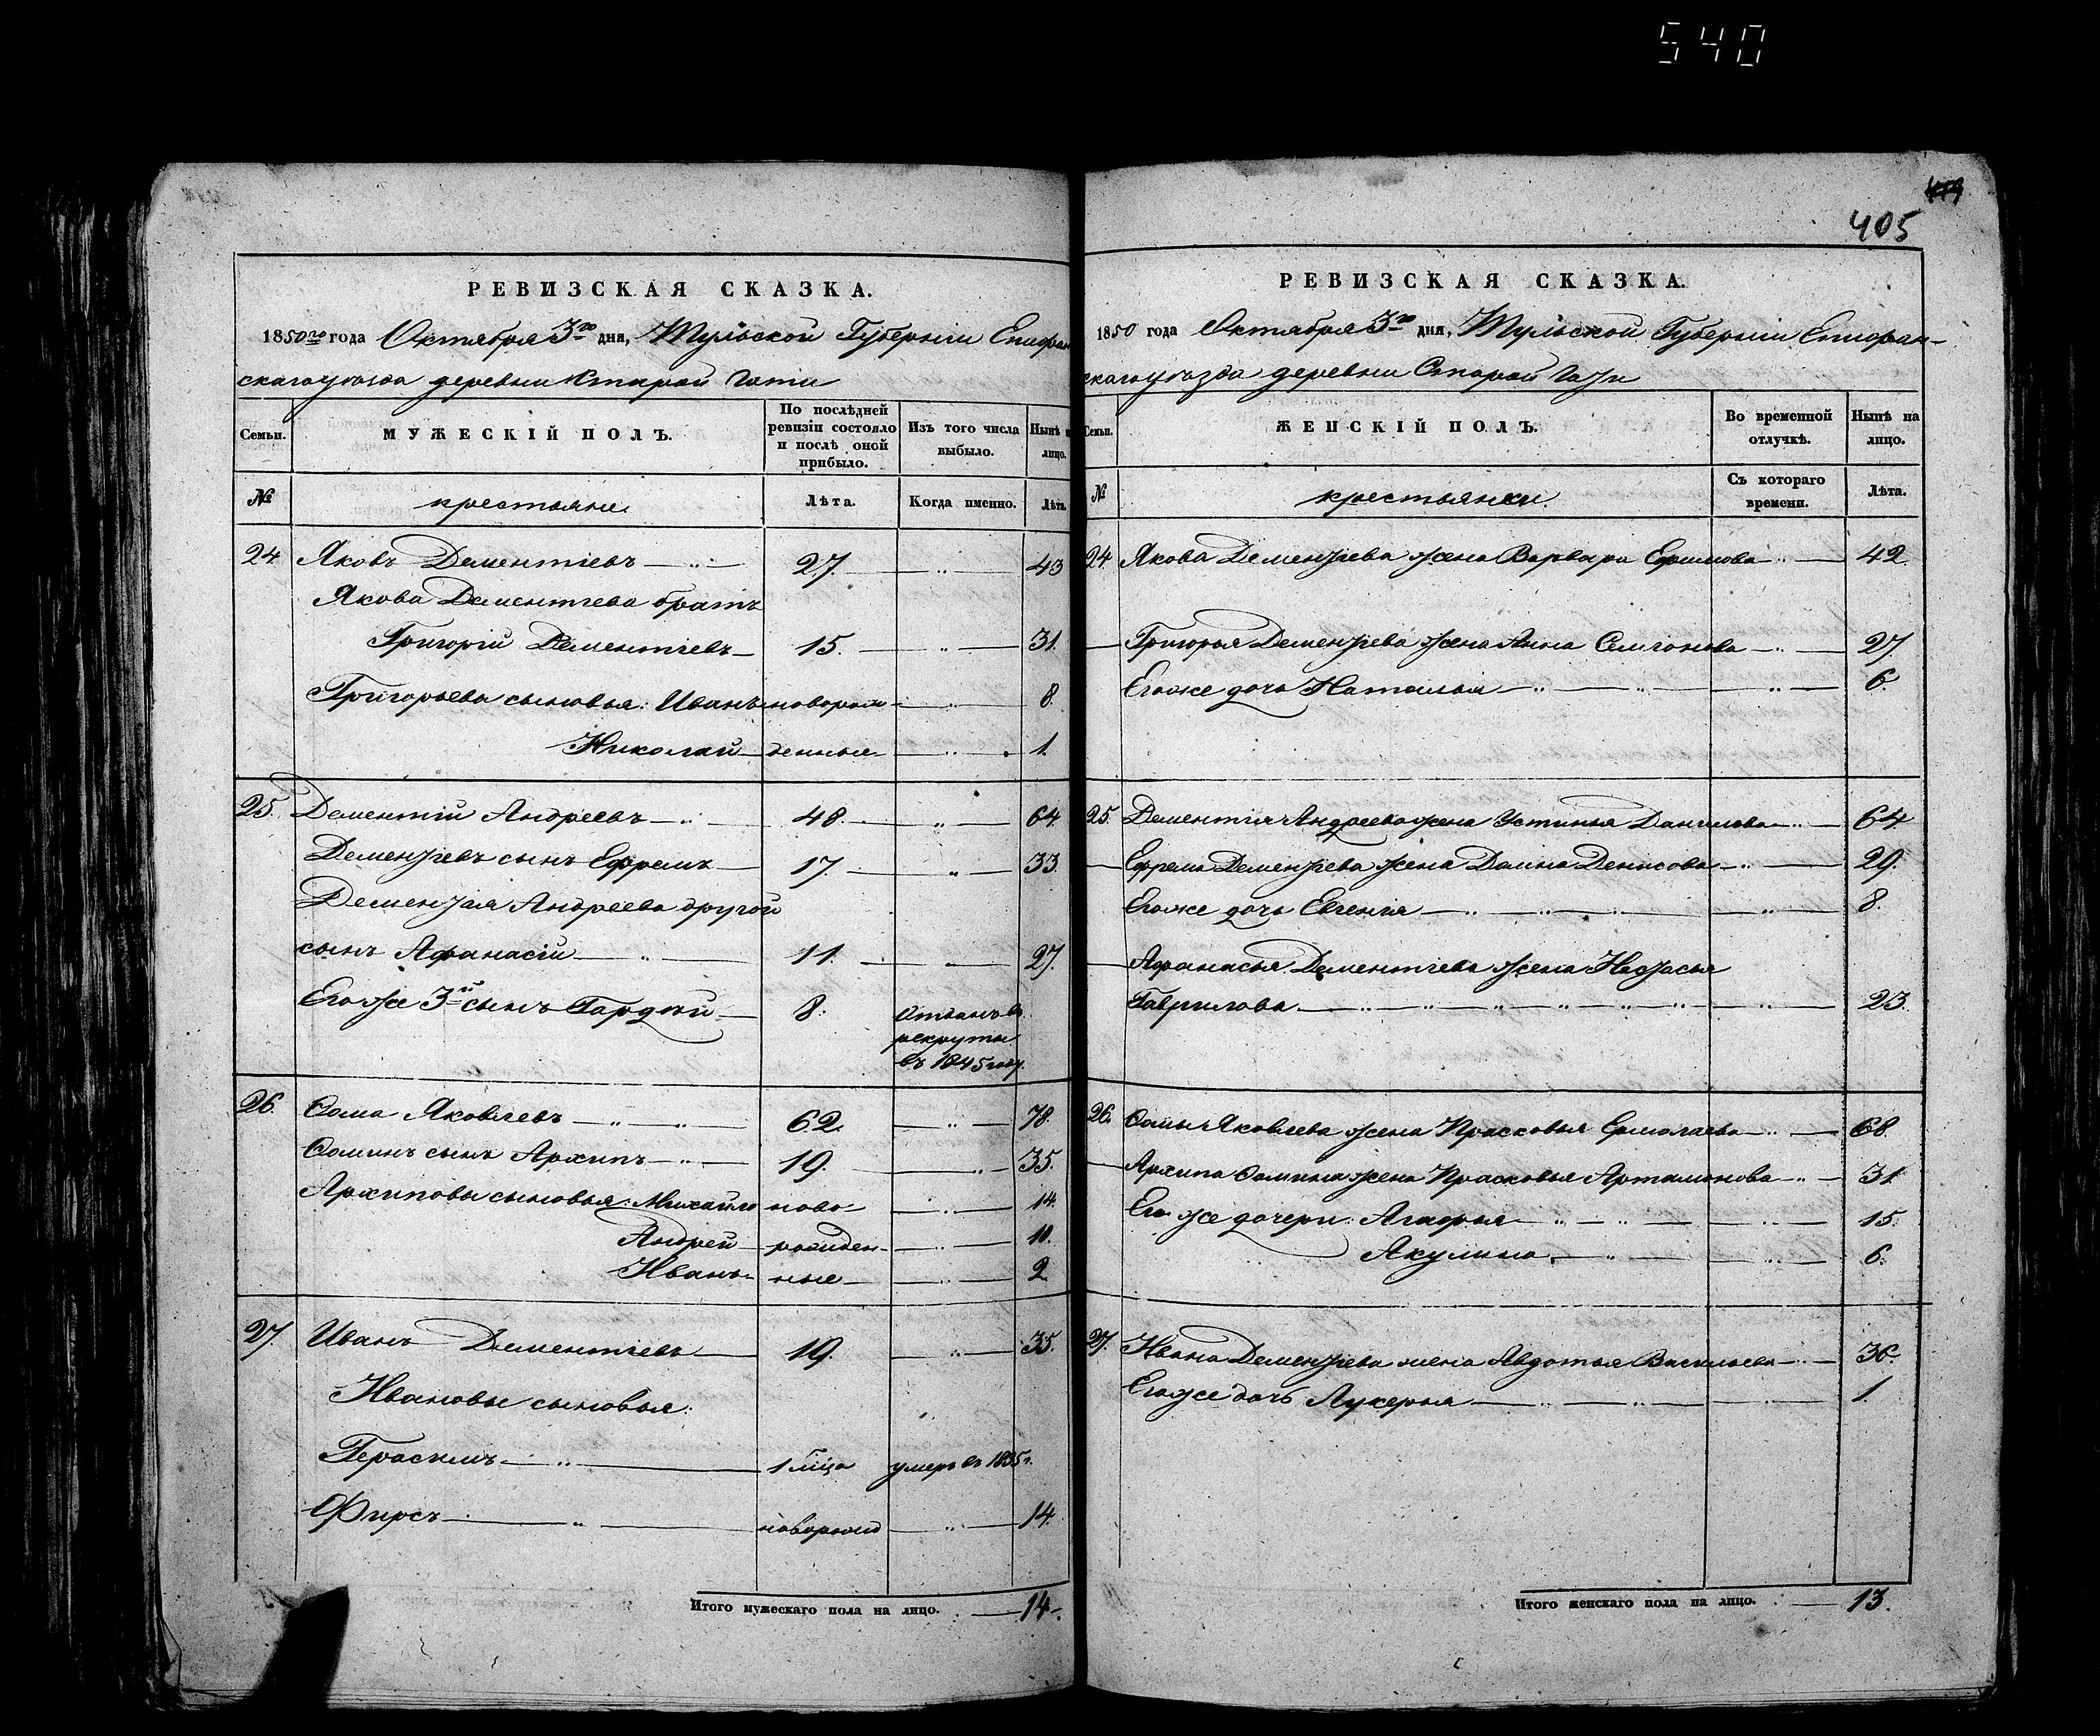 540
419
405
РЕВИЗСКАЯ СКАЗКА.
1850го года Октября 3го дня, Тульской Губернiи Епифан
скаго уѣзда деревни Старой Гати
Семьи. МУЖЕСКIЙ ПОЛЪ. По послѣдней ревизiи состояло и послѣ оной прибыло. Изъ того числа выбыло. Нынѣ на лицо.
№ крестьяне Лѣта. Когда именно. Лѣта
24 Яковъ Дементiевъ 27. 43
Якова Дементiева братъ
Григорiй Дементiевъ 15. 31.
Григорьева сыновья: Иванъ новорож- 8.
Николай денные 1.
25. Дементiй Андреевъ 48. 64.
Дементiевъ сынъ Ефремъ 17. 33.
Дементiя Андреева другой
сынъ Афанасiй 11. 27.
Его же 3й сынъ Гордѣй 8. отданъ въ
рекруты
въ 1845 году.
26. Ѳома Яковлевъ 62. 78.
Ѳоминъ сынъ Архипъ 19. 35.
Архиповы сыновья: Михайло ново- 14.
Андрей рожден- 10.
Иванъ ные 2
27. Иванъ Дементiевъ 19. 35.
Ивановы сыновья:
Герасимъ 1 мѣсѧ умеръ въ 1835 г.
Фирсъ новорожд 14.
Итого мужескаго пола на лицо. 14.
РЕВИЗСКАЯ СКАЗКА.
1850 года Октября 3го дня, Тульской Губернiи Епифан-
скаго уѣзда деревни Старой Гати
Семьи. ЖЕНСКIЙ ПОЛЪ. Во временной отлучкѣ. Нынѣ на лицо.
№ крестьянки. Съ котораго времени. Лѣта.
24. Якова Дементiева жена Варвара Ефимова 42.
Григорья Дементiева жена Анна Семiонова 27
Его же дочь Наталья 6.
25. Дементiя Андреева жена Устинья Данилова 64.
Ефрема Дементiева жена Домна Денисова 29.
Его же дочь Евгенiя 8.
Афанасья Дементiева жена Настасья
Гаврилова 23.
26. Ѳомы Яковлева жена Прасковья Ермолаева 68.
Архипа Ѳомина жена Прасковья Артамонова 31
Его же дочери: Агафья 15.
Акулина 6.
27. Ивана Дементiева жена Авдотья Васильева 36.
Его же дочь Лукерья 1.
Итого женскаго пола на лицо. 13.